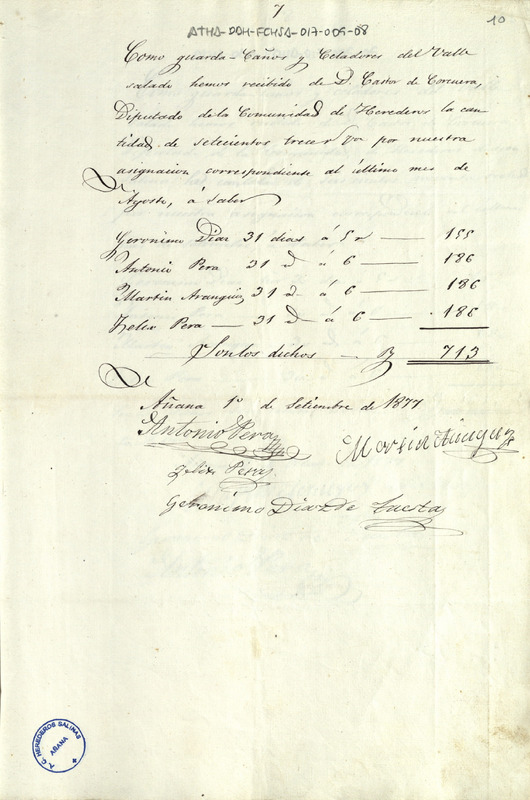 7
10
ATHA-DAH-FCHSA-017-009-08
Como guarda-Caños y Celadores del Valle
salado hemos recibido de D. Castor de Corcuera,
Diputado de la Comunidad de Herederos la can
tidad de setecientos trece rs vn por nuestra
asignacion correspondiente al último mes de
Agosto, á saber
Geronimo Diaz 31 dias á 5 r 155
Antonio Pera 31 d á 6 186
Martin Aranguiz 31 d á 6 186
Felix Pera 31 d á 6 186
Son los dichos 713
Añana 1º de Setiembre de 1877
Antonio Pera
Martin
Felix Pera
Geronimo Diaz de Tuesta
A. C. HEREDEROS SALINAS
AÑANA